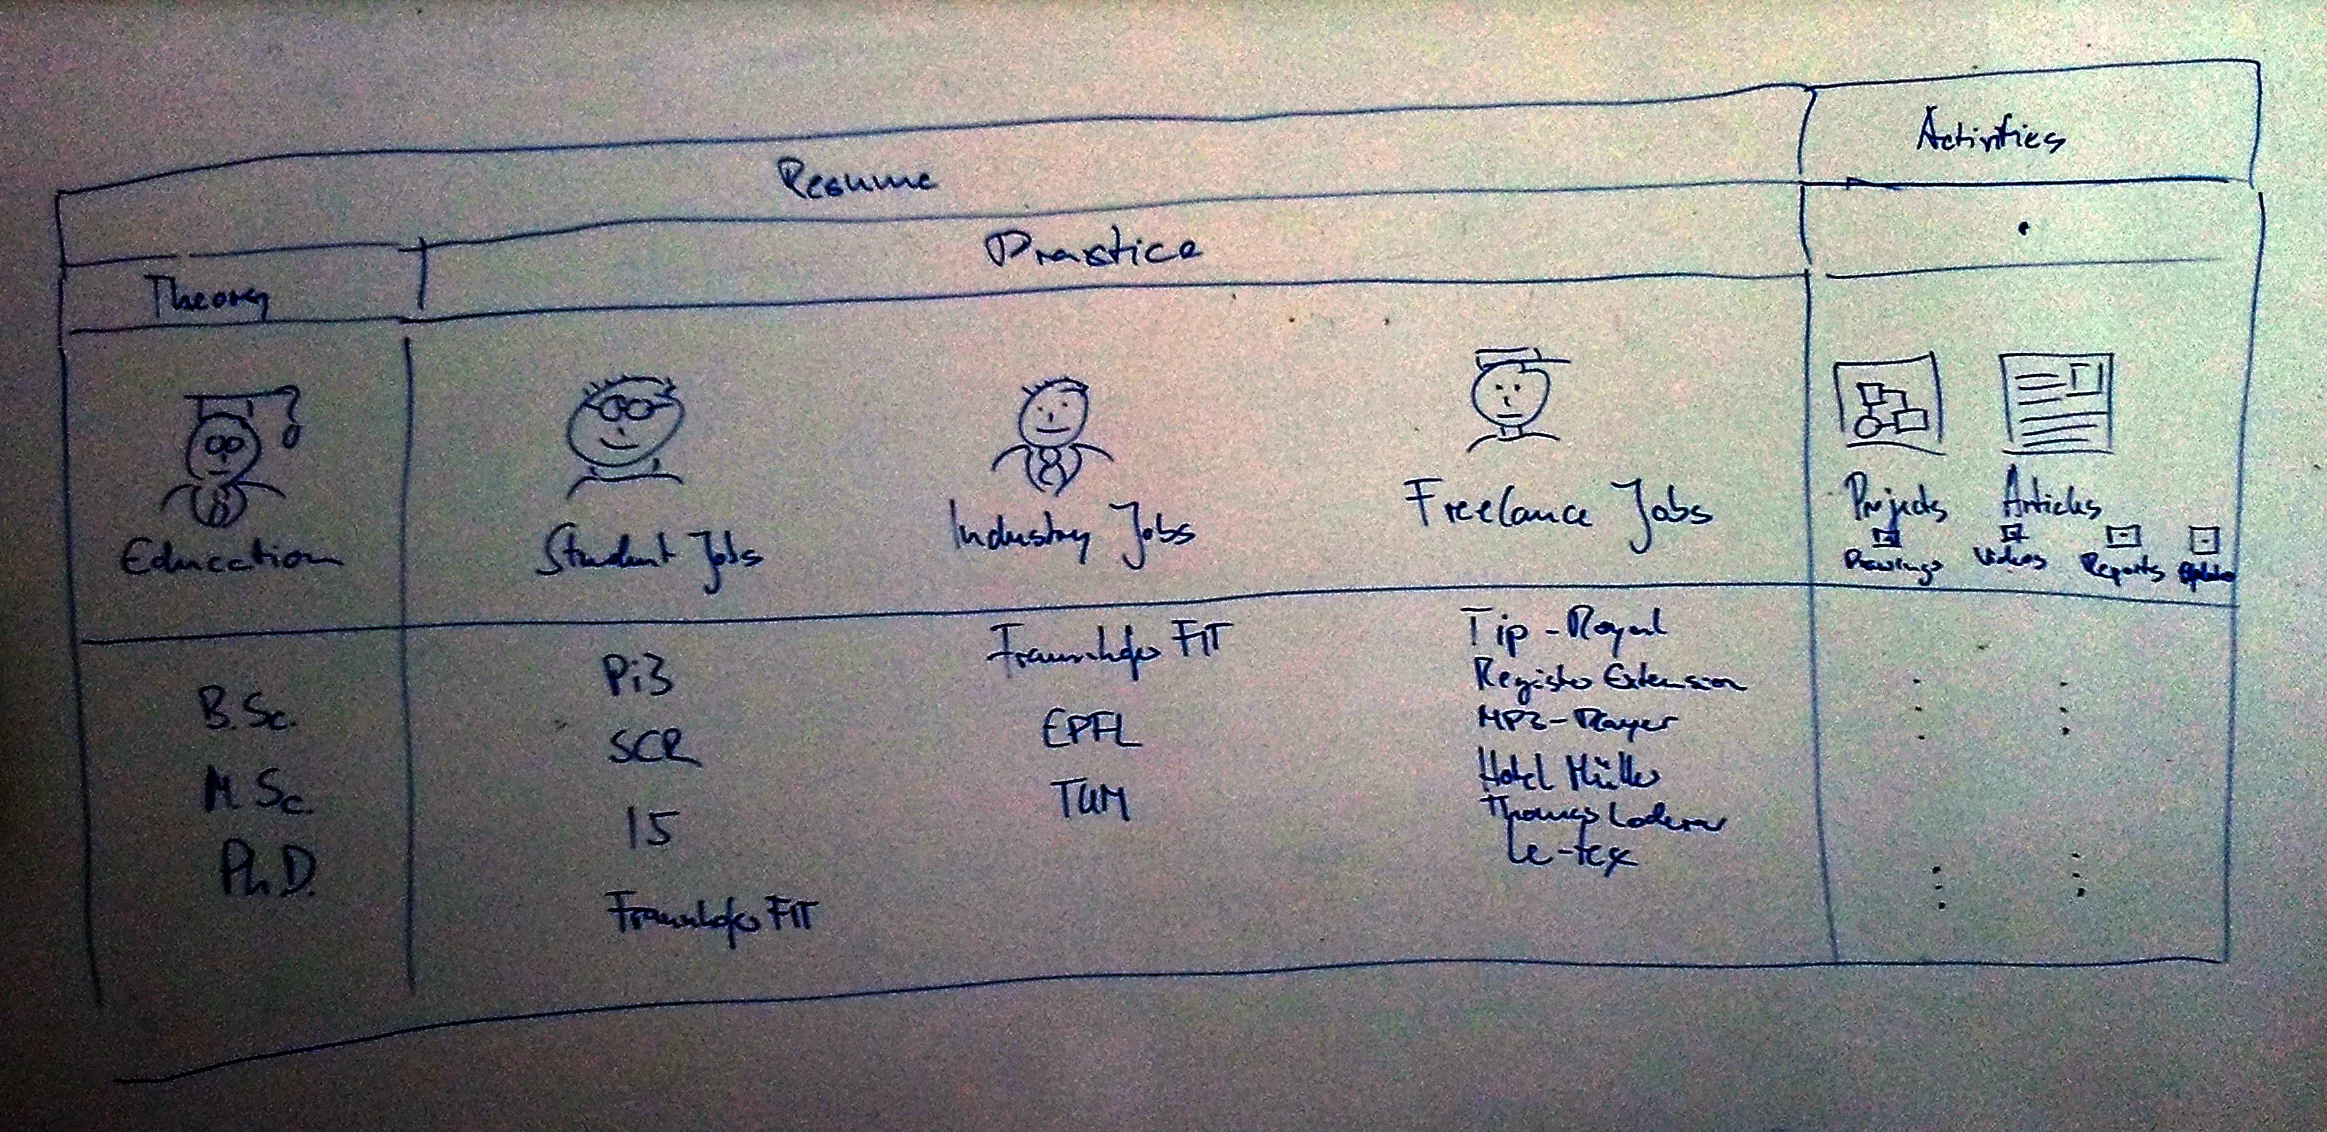 Resume
Activities
Theory
Practice
Education
Student Jobs
Industry Jobs
Freelance Jobs
Projects
Articles
Drawings
Videos
Reports
B.Sc.
M.Sc.
Ph.D.
Pi3
SCR
I5
Fraunhofer FIT
Fraunhofer FIT
EPFL
TUM
Tip-Royal
Register Extension
MP3-Player
Hotel Müller
Thomas Loderer
le-tex